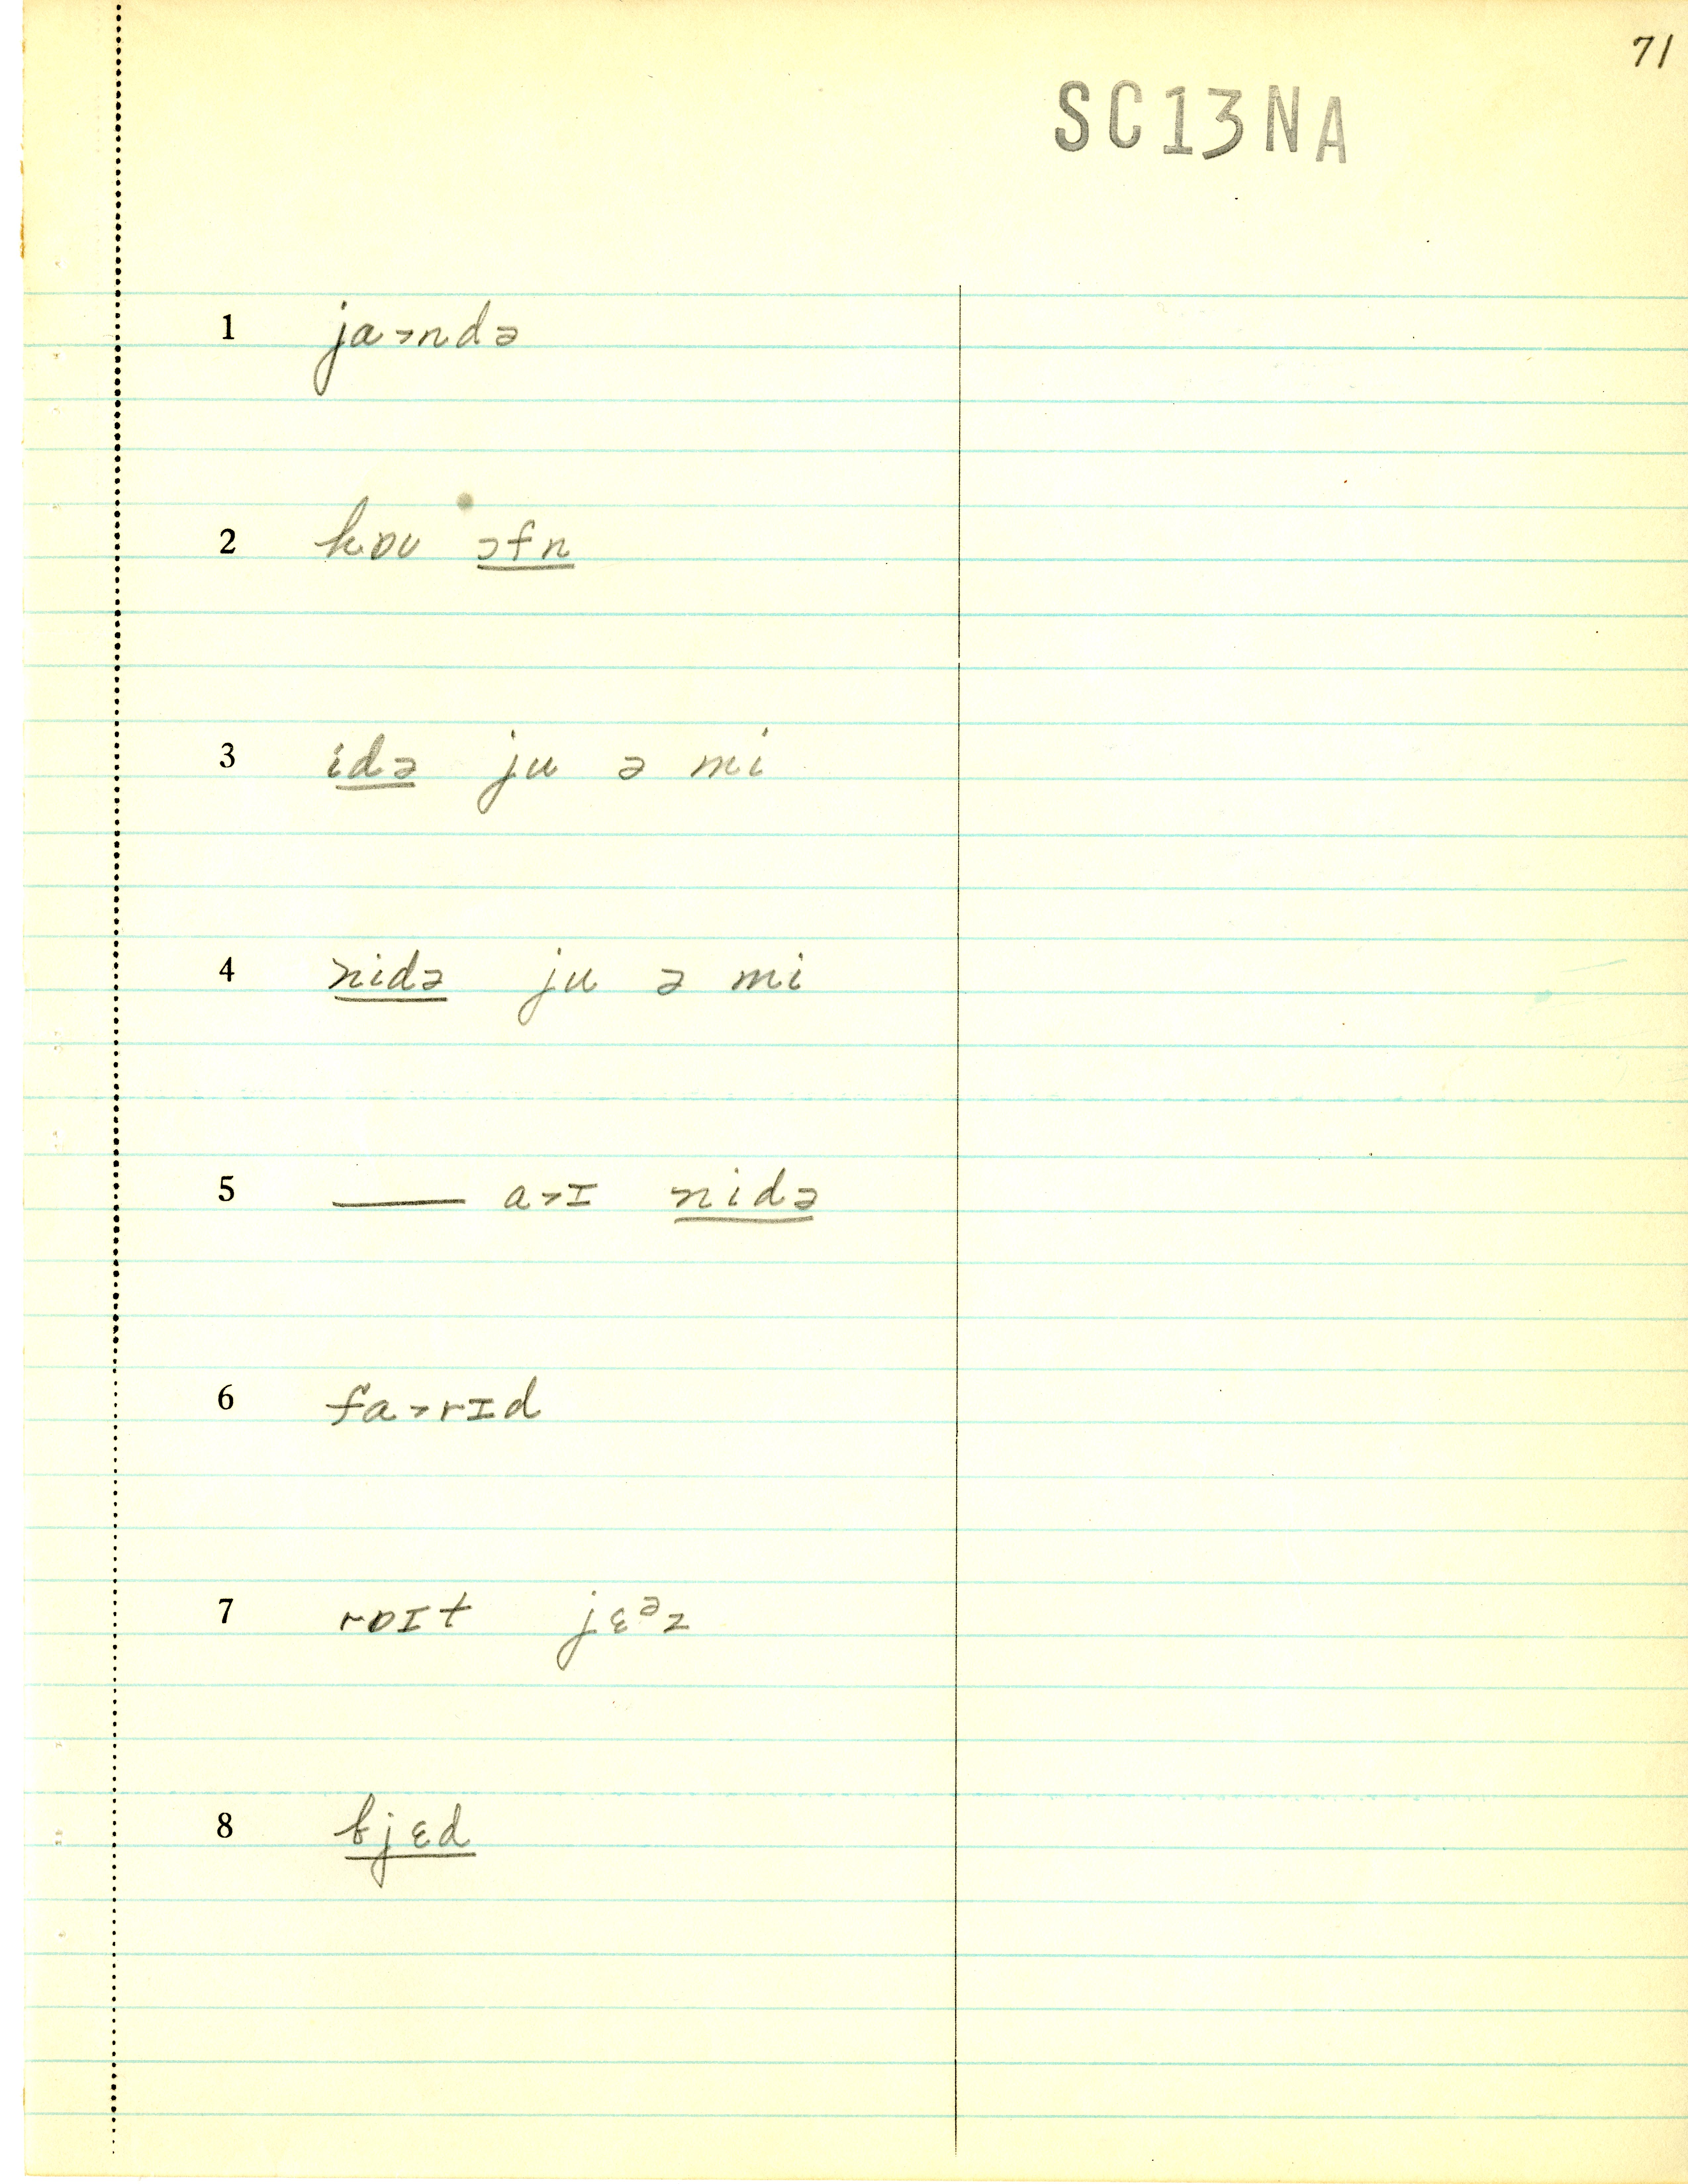 71
SC13NA
1 ja˃ndə
2 hɒʊ ɔfn
3 idə ju ə mi
4 nidə ju ə mi
5 —— a˃ɪ nidə
6 fa˃rɪd
7 rɒɪt jɛᵊz
8 fjɛd